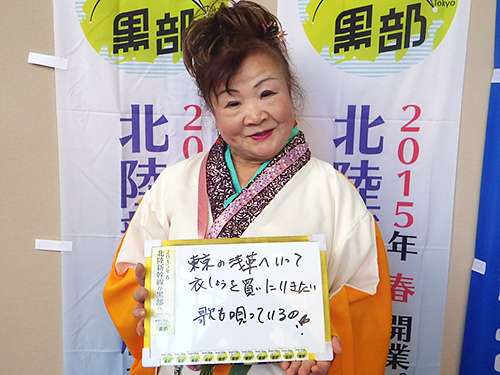 黒部
Tokyo
北陸
2015年 春 開業
黒部
北陸新
2015年春
北陸新幹線が黒部へ
黒部
東京の浅草へいって
衣しょうを買いに行きたい
歌も唄っているの!!